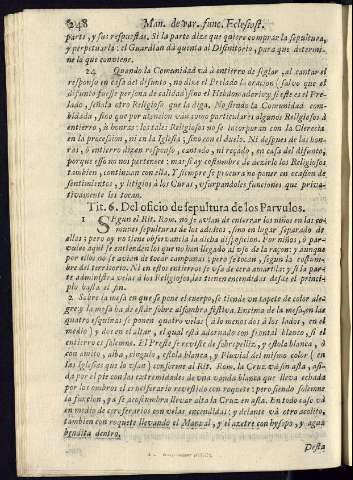 248 Man. de var. func. Eclesiast.
parts, y sus respuestas. Si la parte dize que quiere comprar la sepultura,
y perpetuarla: el Guardian dà quenta al Difinitorio, para que determi-
ne la que conviene.
24 Quando la Comunidad và à entierro de seglar, al cantar el
responso en casa del difunto, no dize el Prelado la oracion (salvo que el
difunto fuesse persona de calidad) sino el Hebdomadario; y si este es el Pre-
lado, señala otro Religioso que la diga. No siendo la Comunidad com-
bidada, sino que por atencion van como particulares algunos Religiosos à
entierro, ù honras: los tales Religiosos no se incorporan con la Clerecia
en la procession, ni en la Iglesia; sino con el duelo. Ni despues de las hon-
ras, ò entierro dizen responso, cantado, ni rezado, en casa del difunto,
porque esso no nos pertenece: mas si ay costumbre de dezirlo los Religiosos
tambien, continuan con ella. Y siempre se procura no poner en ocasion de
sentimientos, y litigios à los Curas, usurpandoles funciones que priva-
tivamente les tocan.
Tit. 6. Del oficio de sepultura de los Parvulos.
1 Segun el Rit. Rom. no se avian de enterrar los niños en las co-
munes sepulturas de los adultos, sino en lugar separado de
ellos; pero oy no tiene observantia la dicha disposicion. Por niños, ò par-
vulos aqui se entienden los que no han llegado al uso de la razon: y aunque
por ellos no se avian de tocar campanas; pero se tocan, segun la costum-
bre del territorio. Ni en estos entierros se usa de cera amarilla: y si la par-
te administra velas à los Religiosos, las tienen encendidas desde el princi-
pio hasta el fin.
2. Sobre la mesa en que se pone el cuerpo, se tiende un tapete de color ale-
gre y la mesa ha de estàr sobre alfombra festiva. Encima de la mesa, en las
quatro esquinas se ponen quatro velas (à lo menos dos à los lados, en el
medio) y dos en el altar, el qual està adornado con frontal blanco, si el
entierro es solemne. El Preste se reviste de sobrepelliz, y estola blanca, ò
con amito, alba, cingulo, estola blanca, y Pluvial del mismo color (en
las Iglesias que lo usan) conforme al Rit. Rom. la Cruz và sin asta, asi-
da por el pie con las extremidades de una vanda blanca que lleva echada
por los ombros el crusiferario revestido con roquete: pero siendo solemne
la funcion, yà se acostumbra llevar alta la Cruz en asta. En todo caso và
en medio de ceroferarios con velas encendidas: y delante và otro acolito,
tambien con roquete llevando el Manual, y el azetre con hysopo, y agua
bendita dentro.
Desta